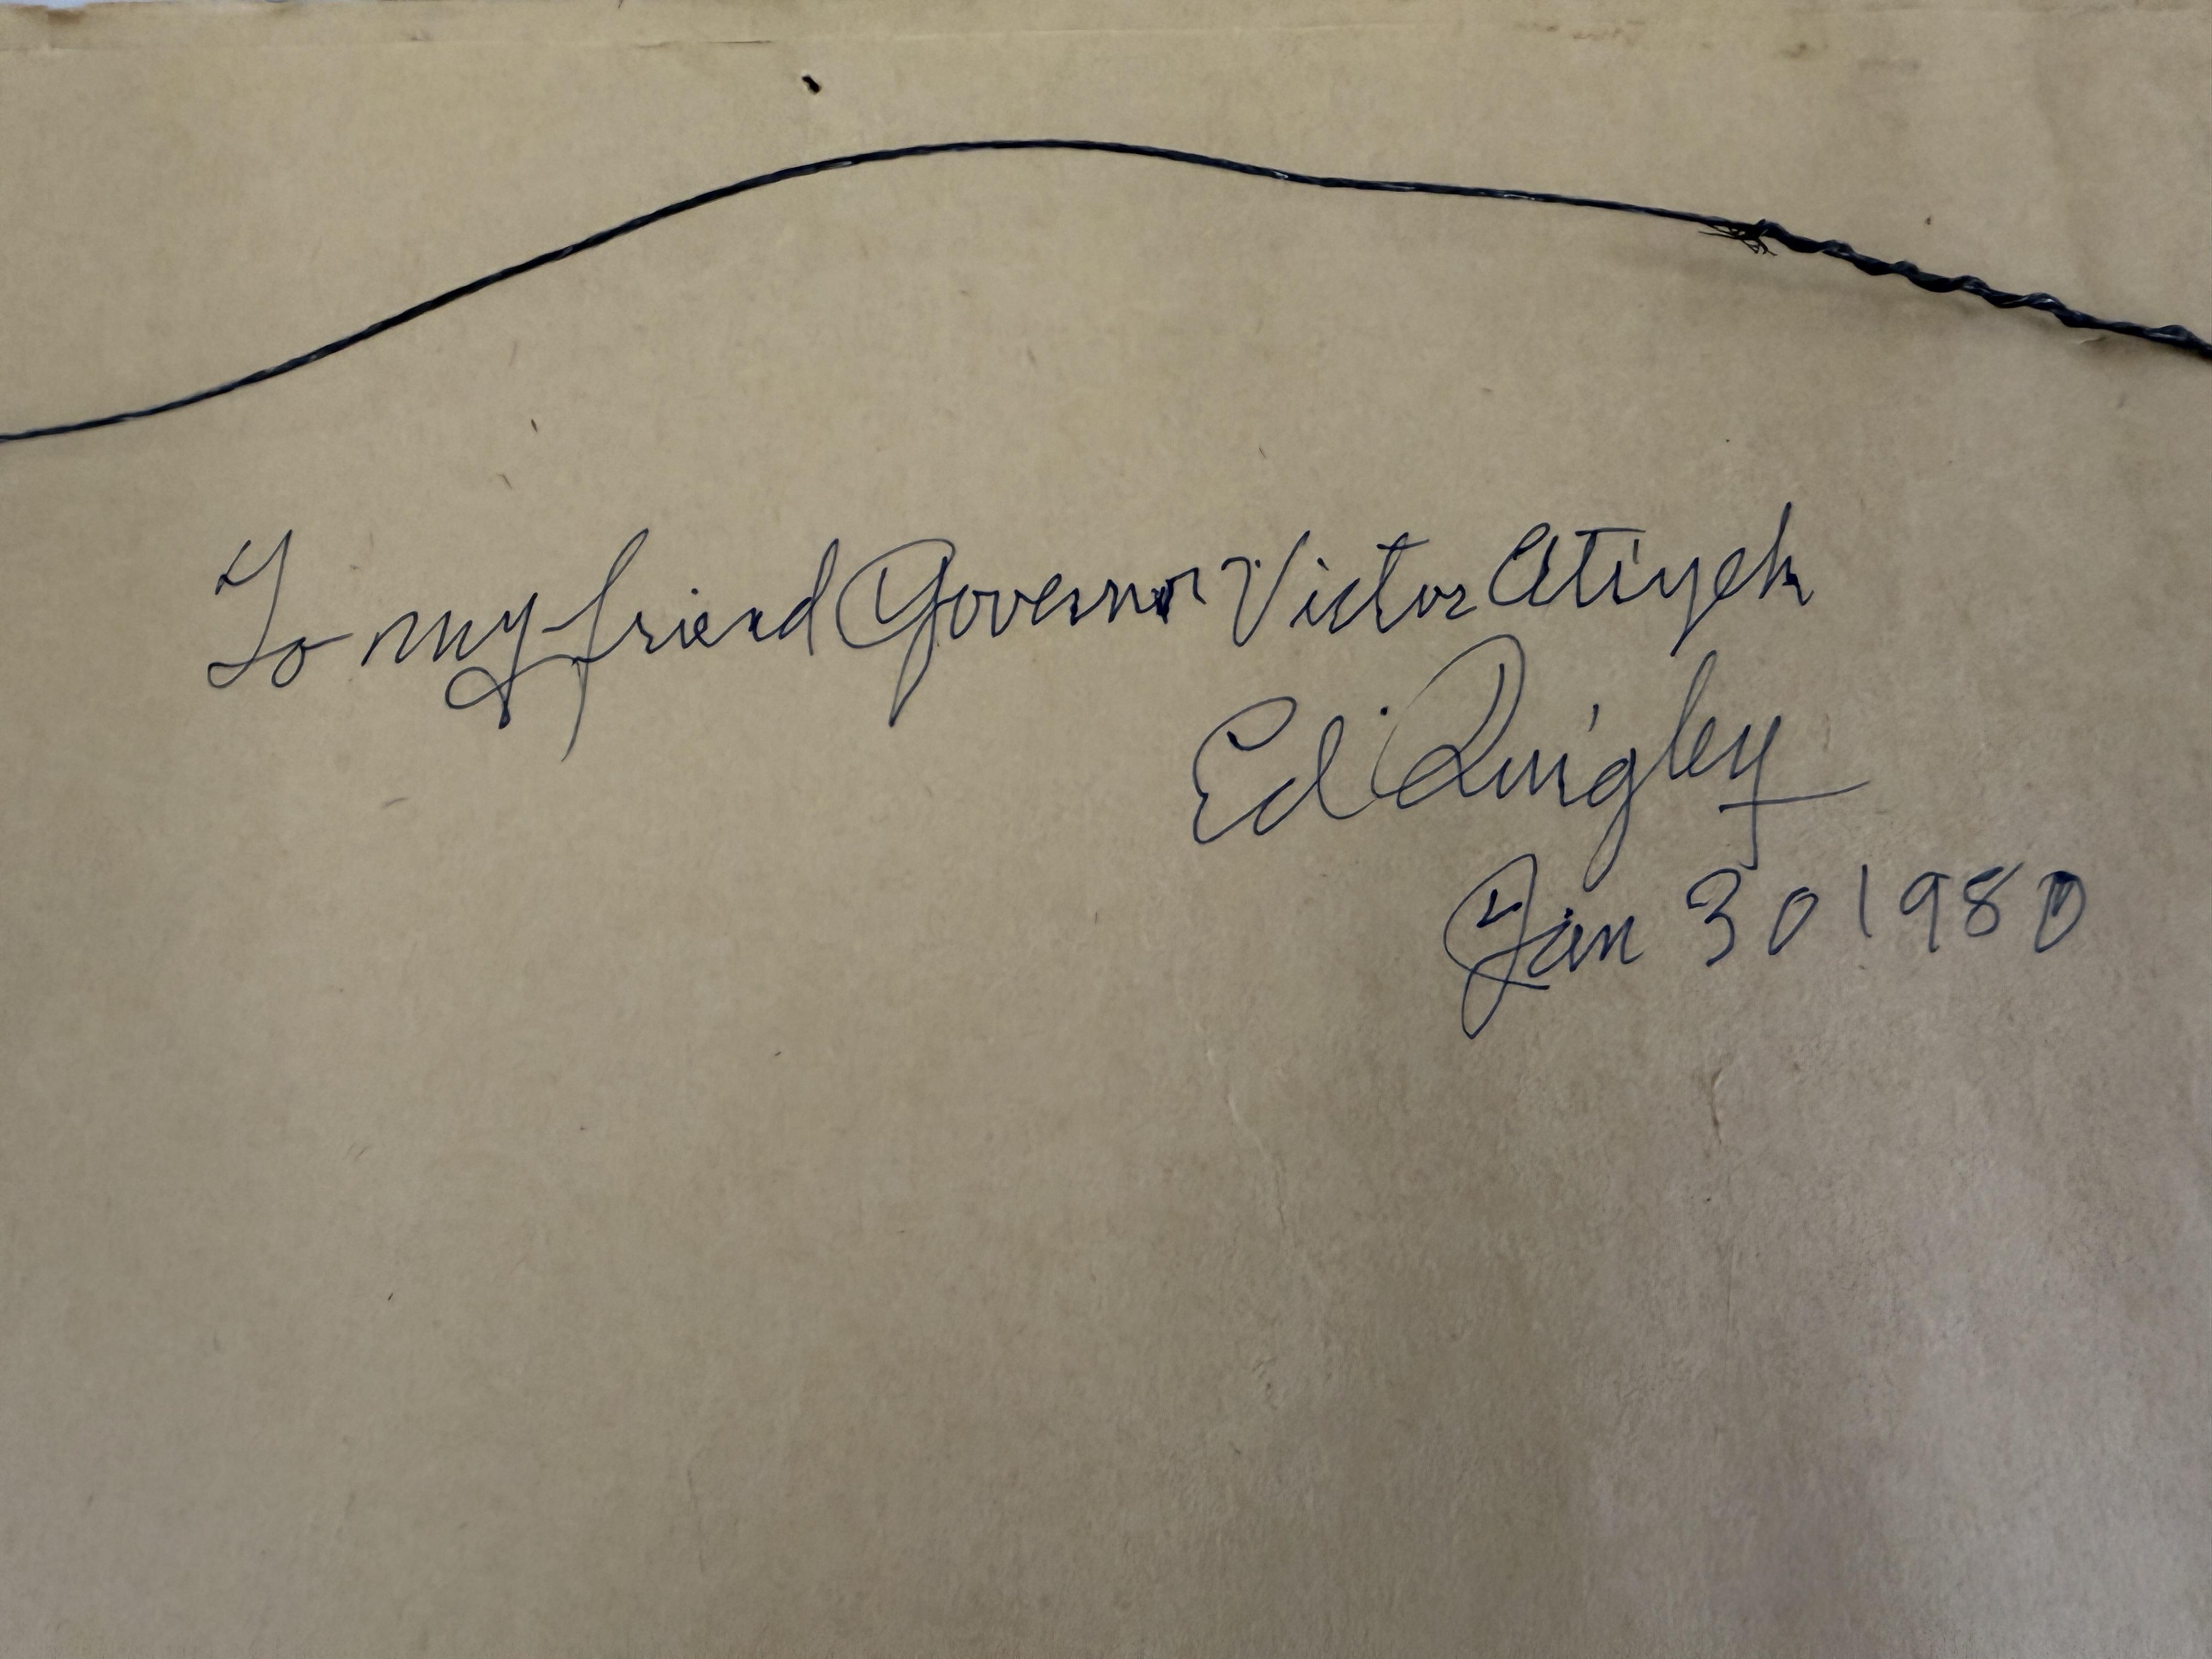 To my friend Governor Victor Atiyeh
Ed Quigley
Jan 30 1980